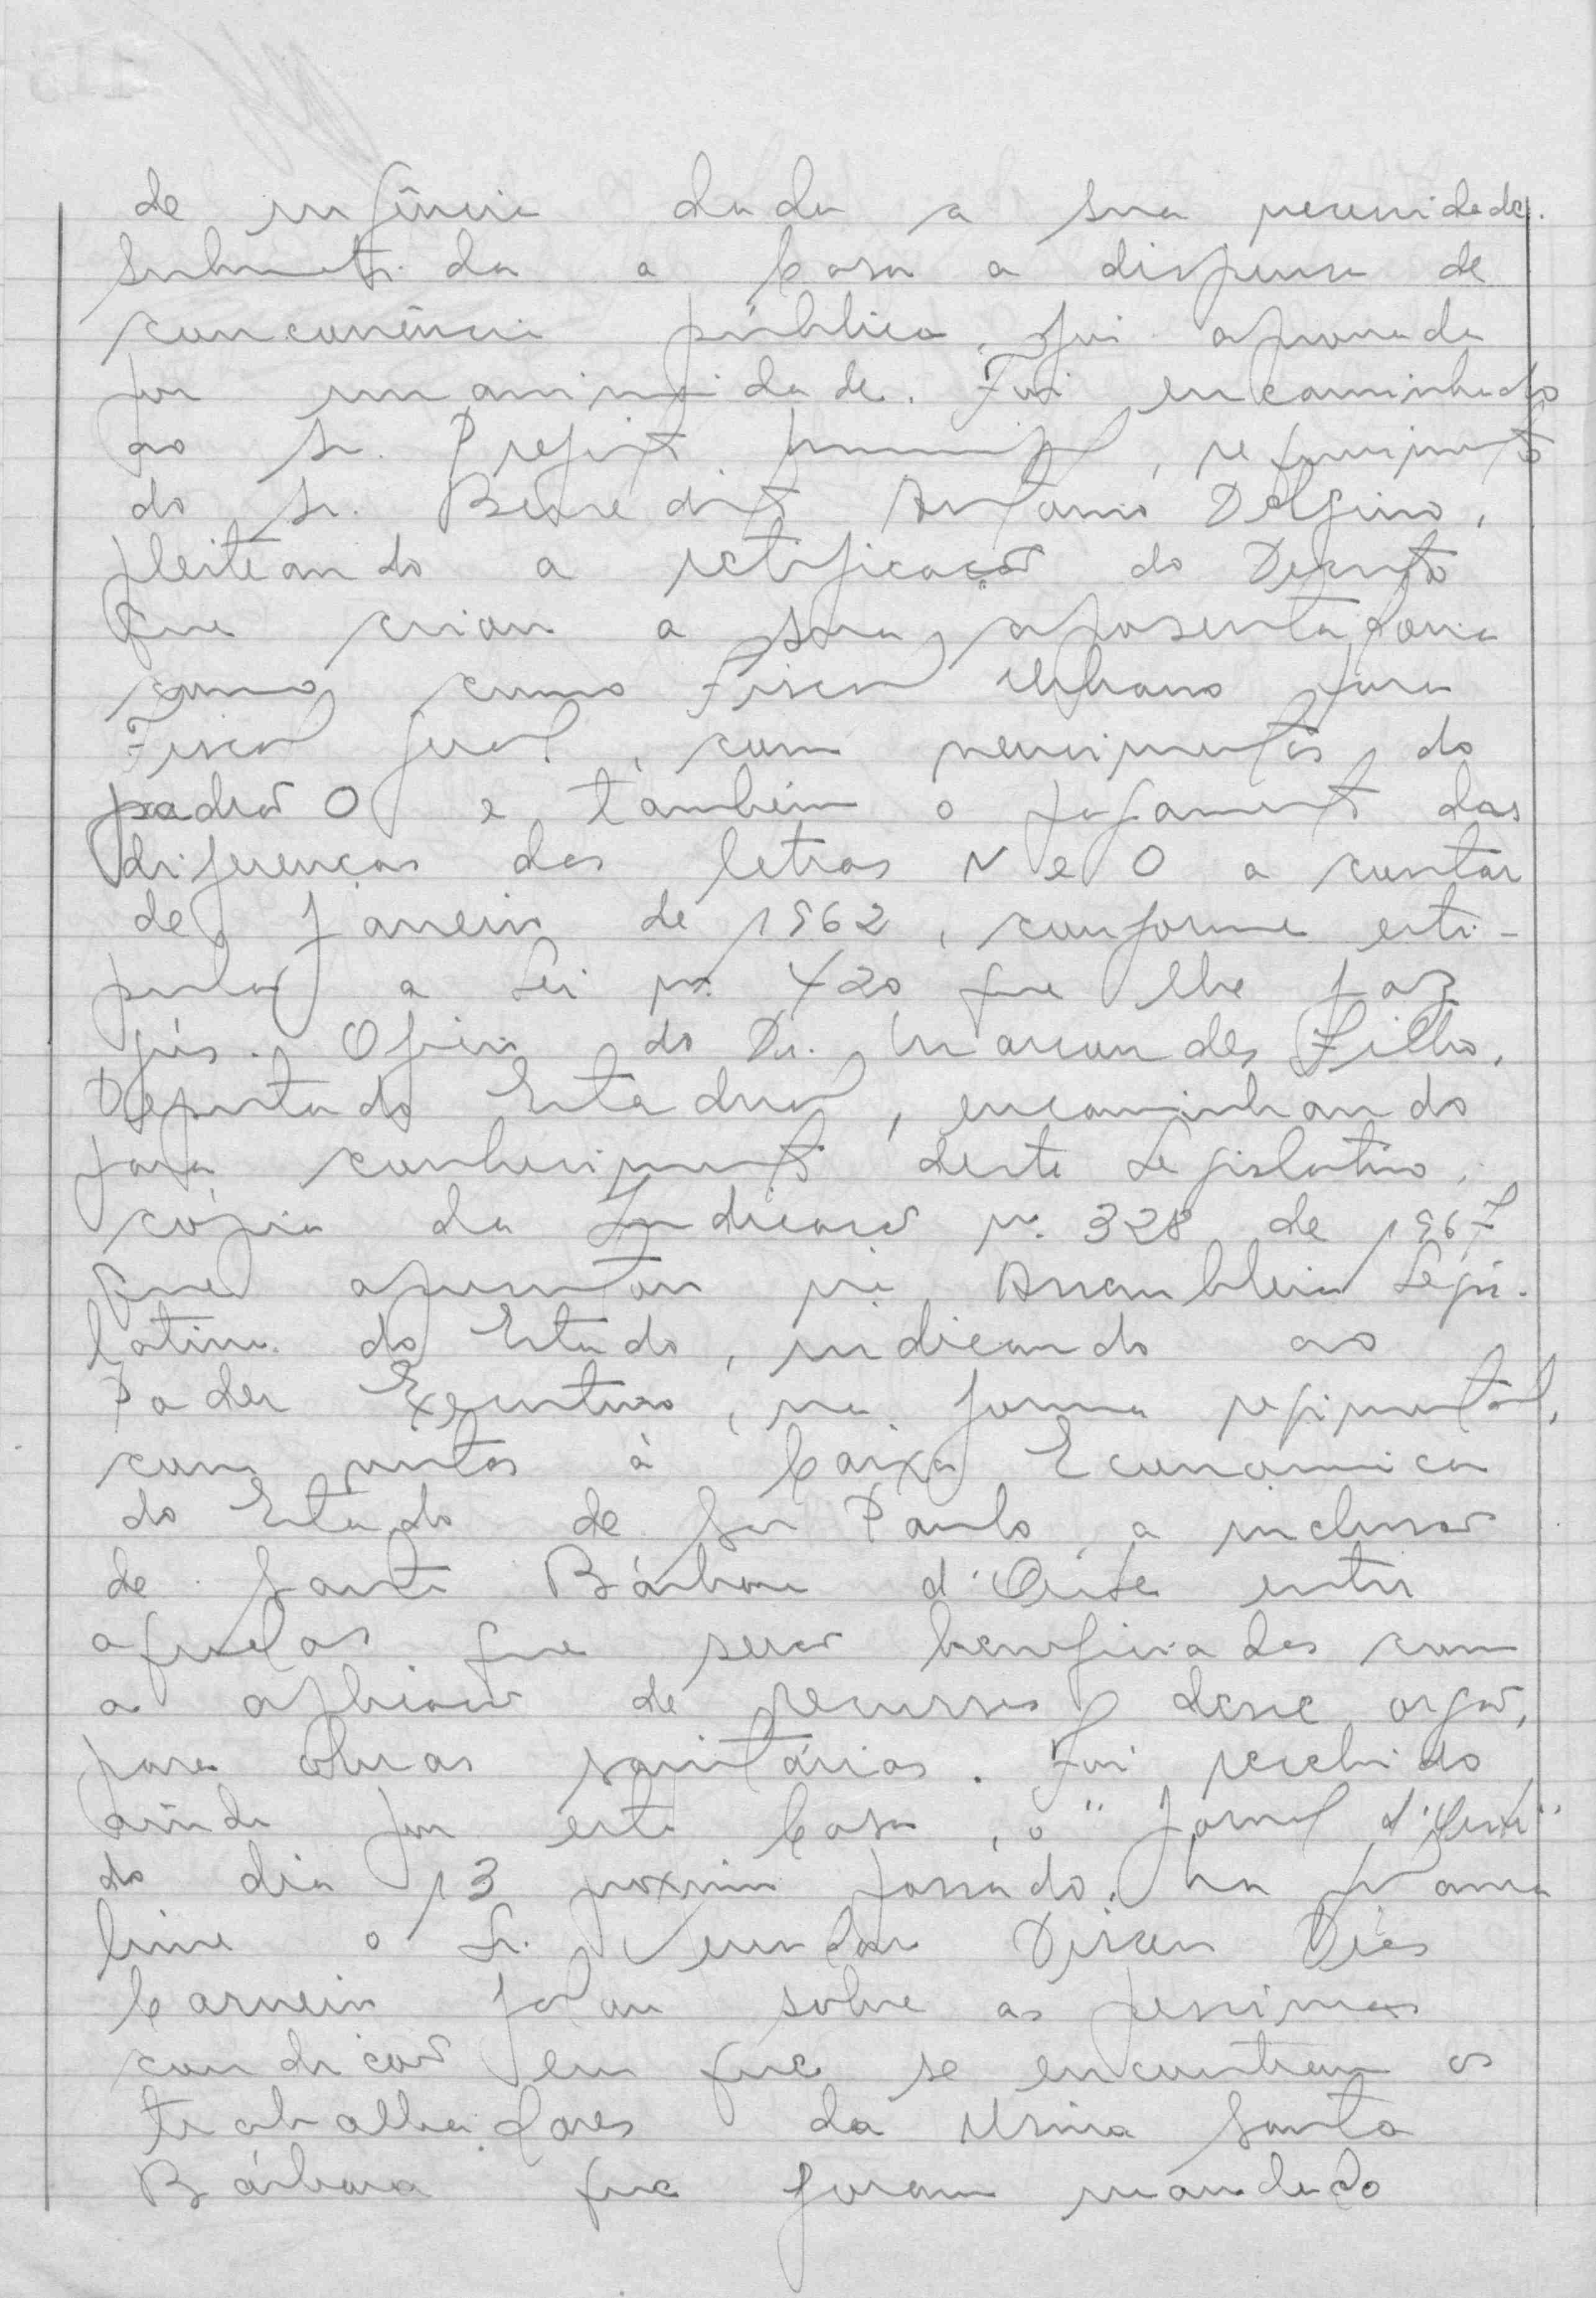 de urgência dada a sua necessidade.
Submetida a Casa a dispensa de
concorrência pública, foi aprovada
por unanimidade. Foi encaminhado
ao Sr. Prefeito Municipal, requerimento
do Sr. Benedito Antonio Delfino,
pleiteando a retificação do Decreto
que criou a sua aposentadoria
como como Fiscal Urbano para
Fiscal Geral, com vencimentos do
padrão O e também o pagamento das
diferenças das letras N e O a contar
de Janeiro de 1962, conforme esti-
pula a Lei nº 420 que lhe faz
jús. Ofício do Dr. Marcondes Filho,
Deputado Estadual, encaminhando
para conhecimento deste Legislativo,
cópia da Indicação nº 328 de 1967
que apresentou na Assembleia Legis-
lativa do Estado, indicando ao
Poder Executivo, na forma regimental,
com vistas à Caixa Economica
do Estado de São Paulo, a inclusão
de Santa Bárbara d'Oeste entre
aquelas que serão beneficiadas com
a aplicação de recursos desse orgão,
para obras sanitárias. Foi recebido
ainda por esta Casa, o "Jornal d'Oeste"
do dia 13 proximo passado. Na
o Sr. Vereador Dirceu Dias
Carneiro falou sobre as pessimas
condição em que se encontram os
trabalhadores da Usina Santa
Bárbara que foram mandado